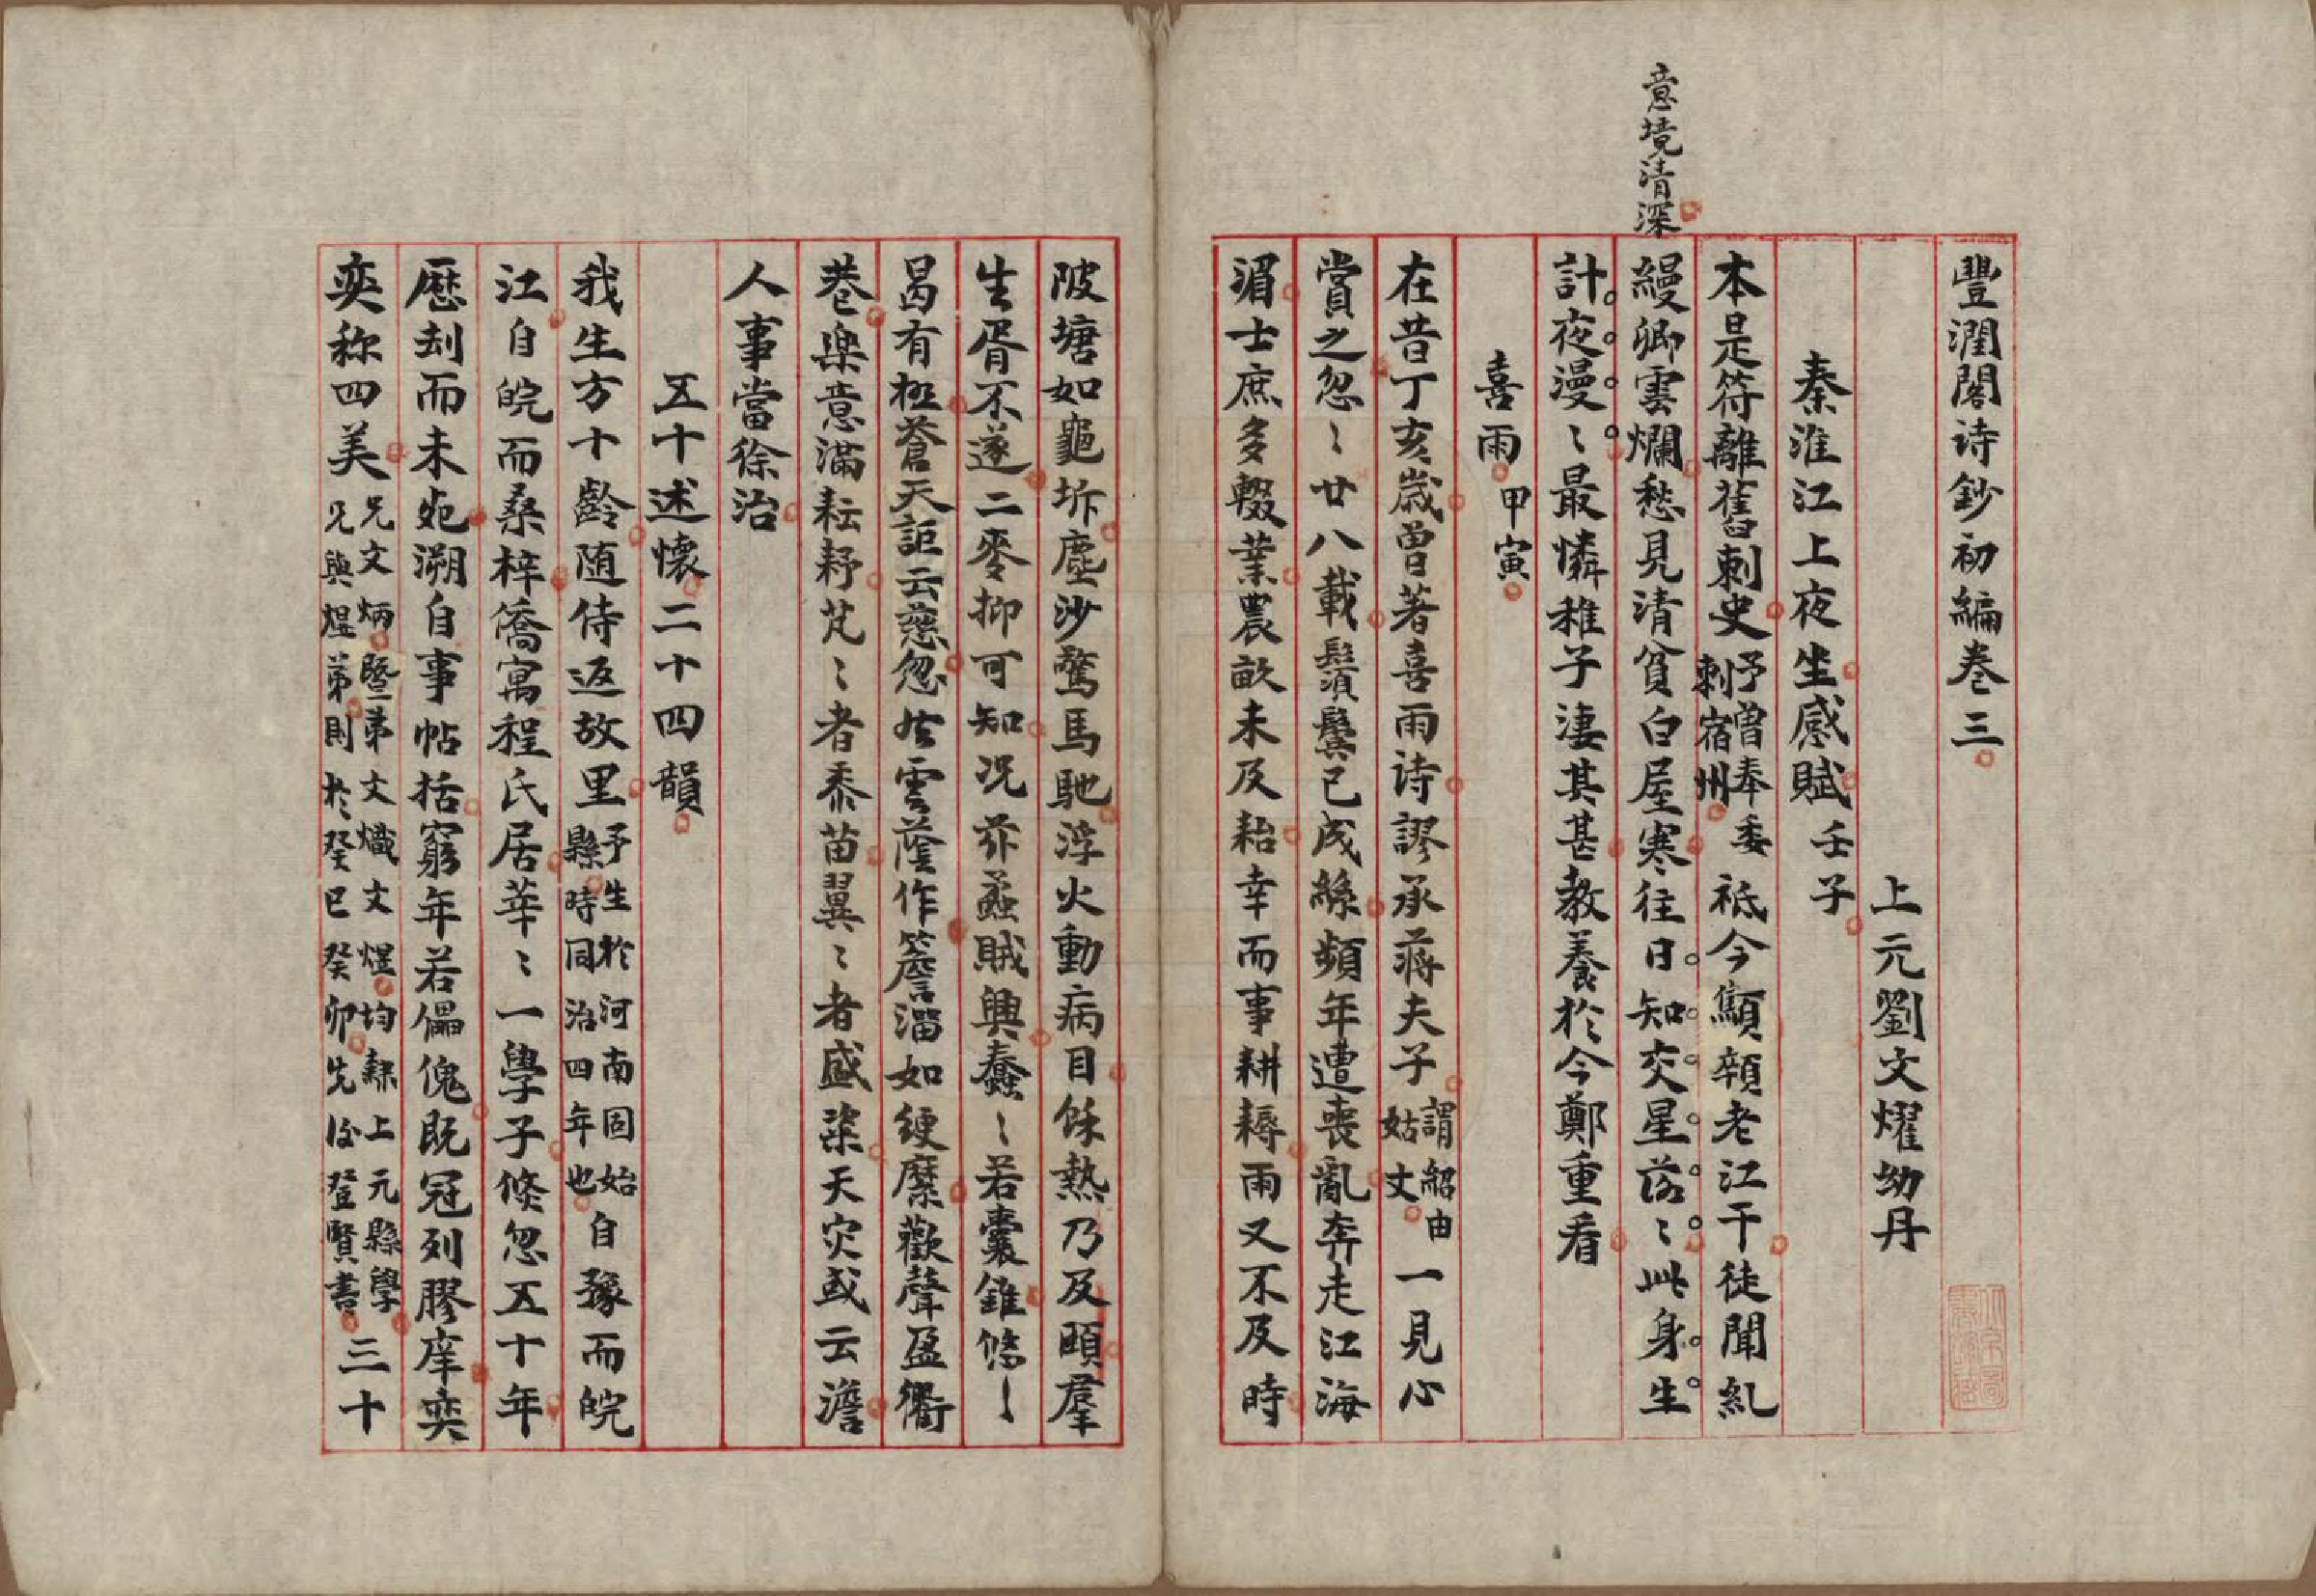 豐潤閣诗鈔初編卷三
上元劉文燿幼丹
秦淮江上夜坐感賦 壬子
本是符離舊刺史予曾奉委刺宿州祗今顦顇老江干徒聞糺
縵卿雲爛愁見清貧白屋寒往日知交星落〻此身生
計夜漫〻最憐稚子淒其甚教養於今鄭重看
意境清深
喜雨 甲寅
在昔丁亥歲曾著喜雨诗謬承蔣夫子謂紹由姑丈一見心
賞之忽〻廿八載鬚鬢已成絲頻年遭喪亂奔走江海
湄士庶多輟業農畝未及耜幸而事耕耨雨又不及時
陂塘如龜坼塵沙驚馬馳浮火動病目餘熱乃及頤羣
生胥不遂二麥抑可知况茲蟊賊興蠢〻若囊錐翛〻
曷有極蒼天詎云慈忽然雲蔭作簷溜如綆縻歡聲盈衢
巷樂意滿耘耔芃〻者黍苗翼〻者盛粢天灾或云澹
人事當徐治
五十述懷二十四韻
我生方十齡随侍返故里予生於河南固始縣時同治四年也自豫而皖
江自皖而桑梓僑寓程氏居莘〻一學子倏忽五十年
歷刦而未死溯自事帖括窮年若儡傀既冠列膠庠奕
奕称四美兄文炳暨弟文熾文煜均隸上元縣學兄與煜弟則於癸巳癸卯先後登賢書三十